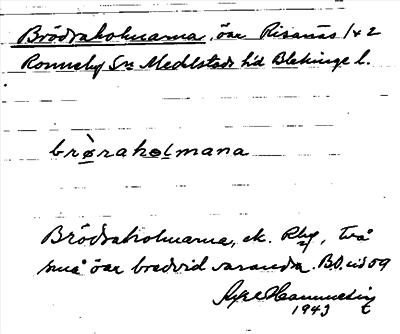 Brödraholmarna, öar Risanäs 1+2
Ronneby Sn Medelstads hd Blekinge l.
brøraholmana
Brödraholmarna, ek. Rby, två
små öar bredvid varandra. BD. nid 59
Axel Hammarling
1943